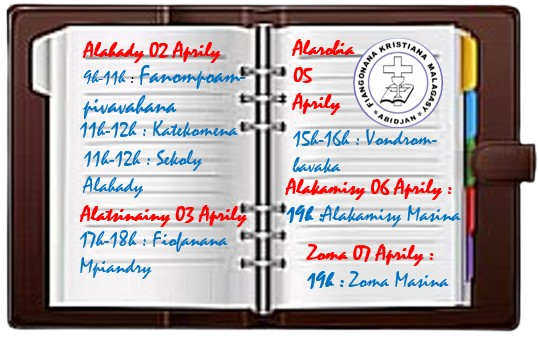 Alahady 02 Aprily
9h-11h : Fanompoam-
pivavahana
11h-12h : Katekomena
11h-12h : Sekoly
Alahady
Alatsinainy 03 Aprily
17h-18h : Fiofanana
Mpiandry
Alarobia
05
Aprily
FIANGONANA KRISTIANA MALAGASY
ABIDJAN
15h-16h : Vondrom-
bavaka
Alakamisy 06 Aprily :
19h :Alakamisy Masina
Zoma 07 Aprily :
19h : Zoma Masina